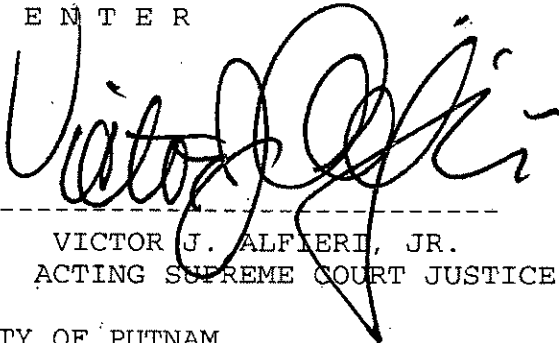 E N T E R
Victor J. Alfieri, Jr.
VICTOR J. ALFIERI, JR.
ACTING SUPREME COURT JUSTICE
TY OF PUTNAM